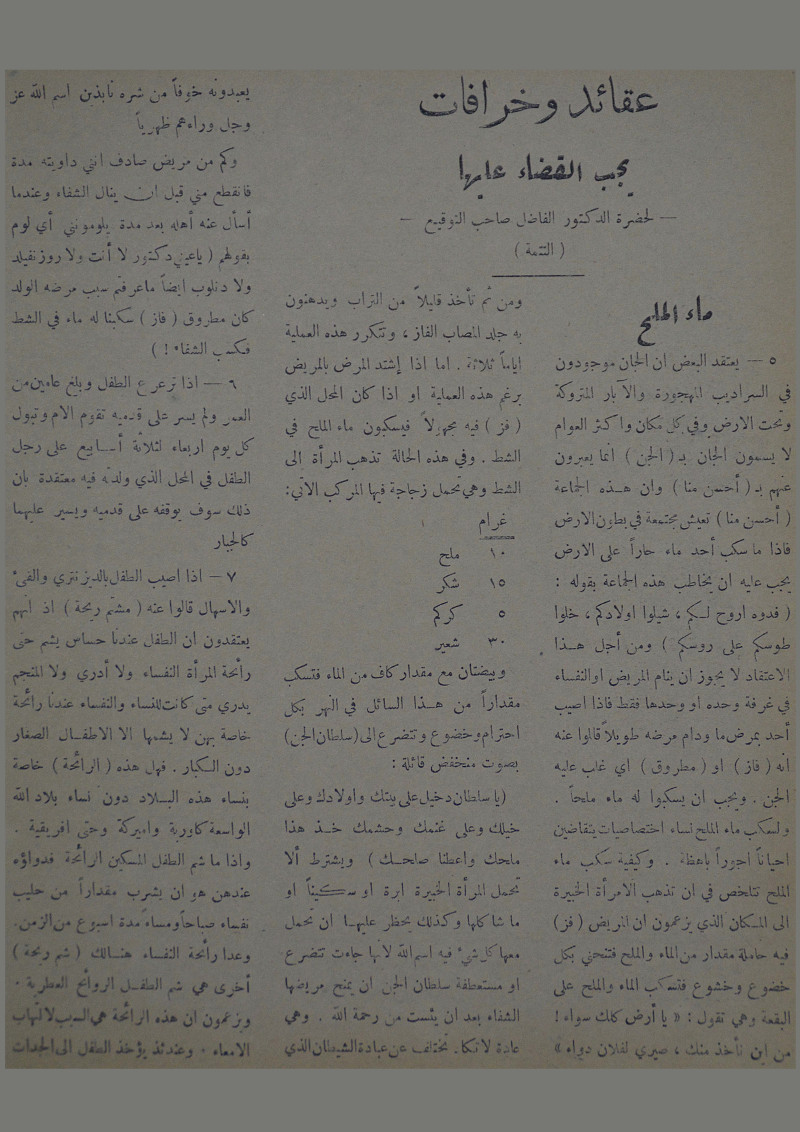 عقائد وخرافات
يجب القضاء عليها
— لحضرة الدكتور الفاضل صاحب التوقيع —
( التتمة )
ماء الملح
٥ — يعتقد البعض ان الجان موجودون
في السراديب المهجورة والآبار المتروكة
وتحت الارض وفي كل مكان واكثر العوام
لا يسمون الجان بـ ( الجن ) انما يعبرون
عنهم بـ ( أحسن منا ) وان هـذه الجماعة
( أحسن منا ) تعيش مجتمعة في بطون الارض
فاذا ما سكب أحد ماء حاراً على الارض
يجب عليه ان يخاطب هذه الجماعة بقوله :
( فدوه اروح لـكم ، شيلوا اولادكم ، خلوا
طوسكم على روسكم ) ومن أجل هـذا
الاعتقاد لا يجوز ان ينام المريض او النفساء
في غرفة وحده او وحدها فقط فاذا اصيب
أحد بمرض ما ودام مرضه طويلاً قالوا عنه
انه ( فاز ) او ( مطروق ) اي غاب عليه
الجن . ويجب ان يسكبوا له ماء ملحاً .
ولسكب ماء الملح نساء اختصاصيات يتقاضين
احياناً أجوراً باهظة . وكيفية سكب ماء
الملح تتلخص في ان تذهب الامرأة الخبيرة
الى المـكان الذي يزعمون ان المريض ( فز )
فيه حاملة مقدار من الماء والملح فتنحني بكل
خضوع وخشوع فتسكب الماء والملح على
البقعة وهي تقول : « يا أرض كلك سواء !
من اين نأخذ منك ، صيري لفلان دواء »
ومن ثم تأخذ قليلاً من التراب ويدهنون
به جلد المصاب الفاز ، وتتكرر هذه العملية
اياماً ثلاثة . اما اذا إشتد المرض بالمريض
برغم هذه العملية او اذا كان المحل الذي
( فز ) فيه مجهولاً فيسكبون ماء الملح في
الشط . وفي هذه الحالة تذهب المرأة الى
الشط وهي تحمل زجاجة فيها المركب الآتي:
غرام
١٠ ملح
١٥ شكر
٥ كركم
٣٠ شعير
وبيضتان مع مقدار كاف من الماء فتسكب
مقداراً من هـذا السائل في النهر بكل
احترام وخضوع وتتضرع الى (سلطان الجن)
بصوت منخفض قائلة :
(يا سلطان دخيل على بنتك واولادك وعلى
خيلك وعلى غنمك وحشمك خـذ هذا
ملحك واعطنا صلحـك ) ويشترط ألا
تحمل المرأة الخبيرة ابرة او سـكيناً او
ما شاكلها وكذلك يحظر عليهـا ان تحمل
معها كل شيء فيه اسم الله لأنها جاءت تتضرع
او مستعطفة سلطان الجن ان يمنح مريضها
الشفاء بعد ان يئست من رحمة الله . وهي
عادة لا تكاد تختلف عن عبادة الشيطان الذي
يعبدونه خوفاً من شره نابذين اسم الله عز
وجل وراءهم ظهرياً
وكم من مريض صادف انني داويته مدة
فانقطع مني قبل ان ينال الشفاء وعندما
أسأل عنه أهله بعد مدة يلومونني أي لوم
بقولهم ( ياعيني دكتور لا أنت ولا روزنفيلد
ولا دنلوب ايضاً ماعرفتم سبب مرضه الولد
كان مطروق ( فاز ) سكبنا له ماء في الشط
فـكسب الشفاء ! )
٦ — اذا ترعرع الطفل وبلغ عامين من
العمر ولم يسر على قدميه تقوم الام وتبول
كل يوم اربعاء لثلاثة أسـابيع على رجل
الطفل في المحل الذي ولدته فيه معتقدة بأن
ذلك سوف يوقفه على قدميه ويسير عليهما
كالجبار
٧ — اذا اصيب الطفل بالديزنتري والقيء
والاسهال قالوا عنه ( مشتم ريحة ) اذ انهم
يعتقدون ان الطفل عندنا حساس يشم حتى
رائحة المرأة النفساء ولا أدري ولا المنجم
يدري متى كانت للنساء والنفساء عندنا رائحة
خاصة بهن لا يشمها الا الاطفـال الصغار
دون الـكبار . فهل هذه ( الرائحة ) خاصة
بنساء هذه البلاد دون نساء بلاد الله
الواسعة كاوربة واميركة وحتى افريقية .
واذا ما شم الطفل المسكين الرائحة فدواؤه
عندهن هو ان يشرب مقداراً من حليب
نفساء صباحاً ومساءً مدة اسبوع من الزمن.
وعدا رائحة النفساء هنـالك ( شم ريحة )
أخرى هي شم الطفـل الروائح العطرية .
ويزعمون ان هذه الرائحة هي السبب لالتهاب
الامعاء . وعندئذ يؤخذ الطفل الى الجدات